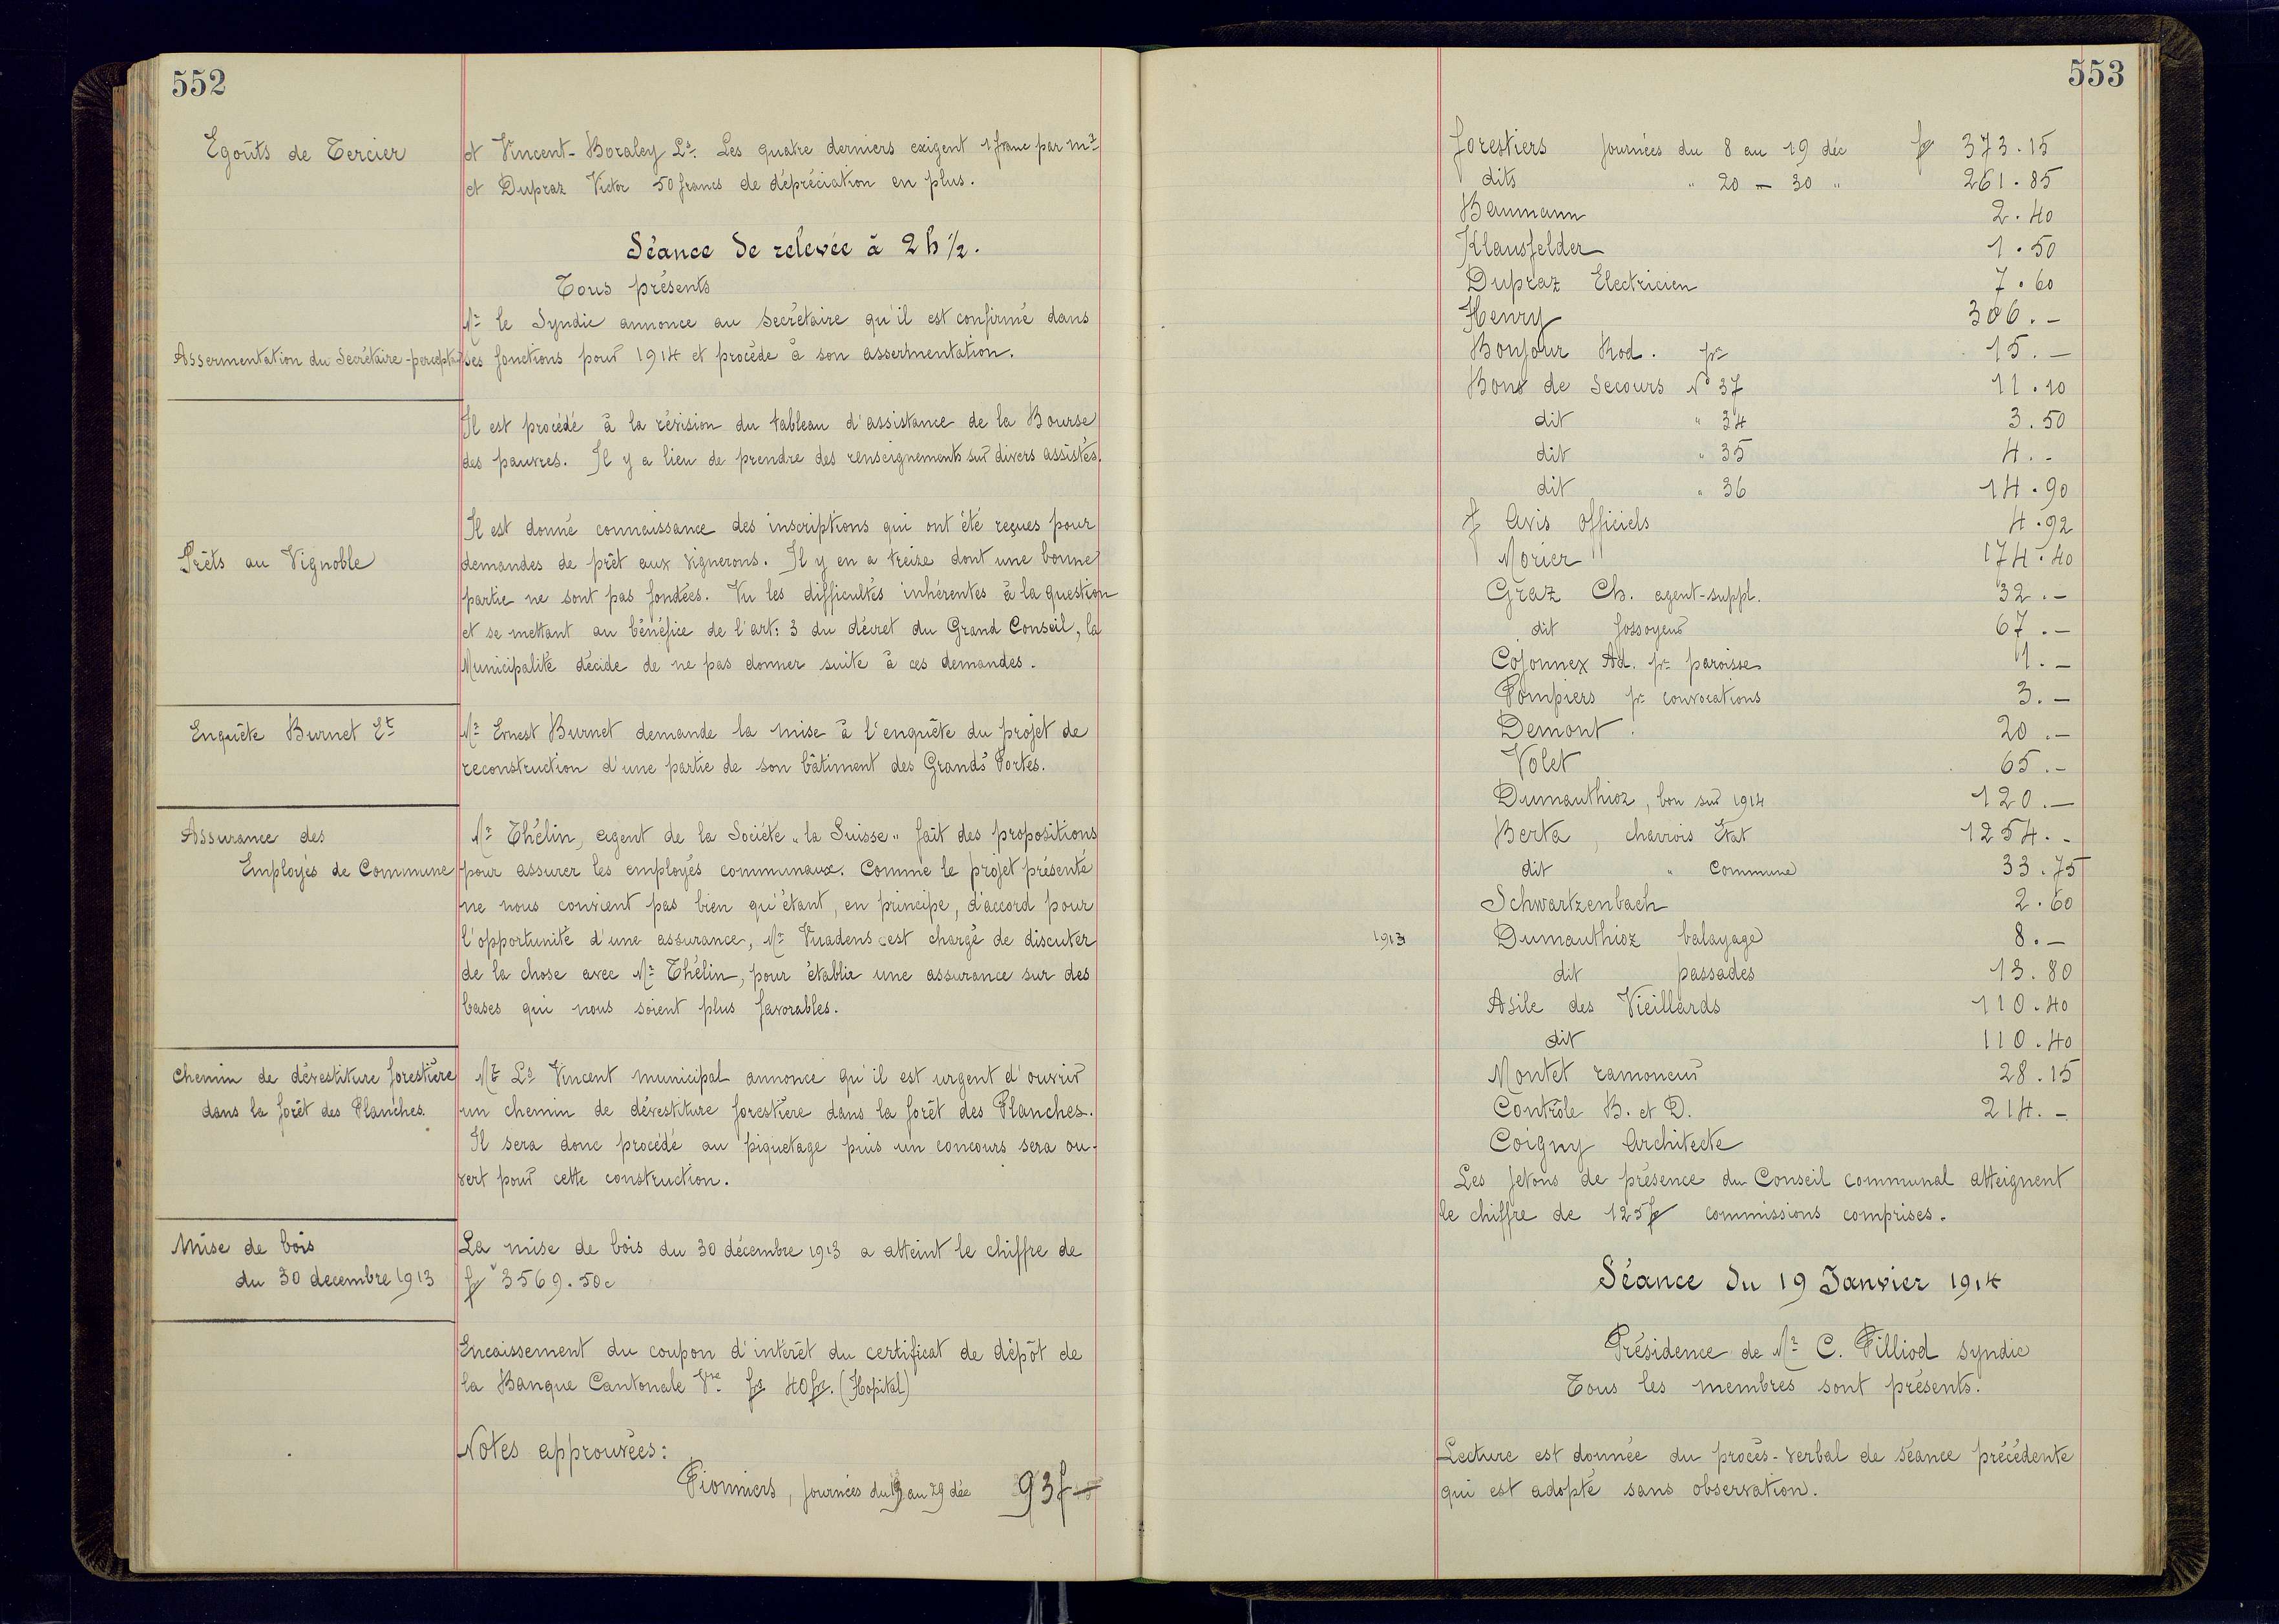 552
Egoûts de Tercier
et Vincent-Boraley Ls. Les quatre derniers exigent 1 franc par m2
et Dupraz Victor 50 francs de dépréciation en plus.
Séance de relevée à 2 h ½.
Tous présents
Mr le Syndic annonce au Secrétaire qu'il est confirmé dans
Assermentation du Secrétaire-percept
ses fonctions pour 1914 et procède à son assermentation.
Il est procédé à la révision du tableau d'assistance de la Bourse
des pauvres. Il y a lieu de prendre des renseignements sur divers assistés.
Il est donné connaissance des inscriptions qui ont été reçues pour
Prêts au Vignoble
demandes de prêt aux vignerons. Il y en a treize dont une bonne
partie ne sont pas fondées. Vu les difficultés inhérentes à la question
et se mettant au bénéfice de l'art: 3 du décret du Grand Conseil, la
Municipalité décide de ne pas donner suite à ces demandes.
Enquête Burnet Et
Mr Ernest Burnet demande la mise à l'enquête du projet de
reconstruction d'une partie de son bâtiment des Grands Portes.
Assurance des
Employés de Commune
Mr Thélin, agent de la Société "la Suisse" fait des propositions
pour assurer les employés communaux. Comme le projet présenté
ne nous convient pas bien qu'étant, en principe, d'accord pour
l'opportunité d'une assurance, Mr Vuadens est chargé de discuter
de la chose avec Mr Thélin, pour établir une assurance sur des
bases qui nous soient plus favorables.
Chemin de dévestiture forestière
dans la forêt des Planches.
Mr Ls Vincent municipal annonce qu'il est urgent d'ouvrir
un chemin de dévestiture forestière dans la forêt des Planches.
Il sera donc procédé au piquetage puis un concours sera ou-
vert pour cette construction.
Mise de bois
du 30 decembre 1913
La mise de bois du 30 décembre 1913 a atteint le chiffre de
fr 3569.50c
Encaissement du coupon d'intérêt du certificat de dépôt de
la Banque Cantonale Vse fr 40 fr. (Hopital)
Notes approuvées:
Pionniers, journées du 9 au 29 déc 93 f —
553
forestiers journées du 8 au 19 déc fr 373.15
dits " 20 — 30 " 261.85
Baumann 2.40
Klausfelder 1.50
Dupraz Electricien 7.60
Henry 306.—
Bonjour Rod. pr 15.—
Bons de Secours No 37 11.10
dit " 34 3.50
dit " 35 4.-
dit " 36 14.90
f Avis officiels 4.92
Morier 174.40
Graz Ch. agent-suppl. 32.—
dit fossoyeur 67.—
Cojonnex Ad. pr paroisse 1.—
Pompiers pr convocations 3.—
Demont 20.—
Volet 65.—
Dumauthioz, bon sur 1914 120.—
Berta, charrois Etat 1254.-
dit " Commune 33.75
Schwartzenbach 2.60
1913 Dumauthioz balayage 8.—
dit passades 13.80
Asile des Vieillards 110.40
dit 110.40
Montet ramoneur 28.15
Contrôle B. et D. 214.—
Coigny Architecte
Les jetons de présence du Conseil communal atteignent
le chiffre de 125 fr commissions comprises.
Séance du 19 Janvier 1914
Présidence de Mr C. Pilliod syndic
Tous les membres sont présents.
Lecture est donnée du procès-verbal de séance précédente
qui est adopté sans observation.